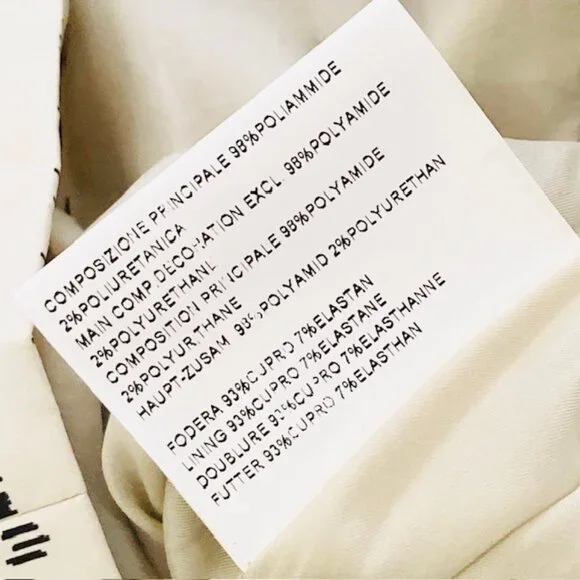 COMPOSIZIONE PRINCIPALE 98%POLIAMMIDE
2%POLIURETANICA
MAIN COMP.DECORATION EXCL. 98%POLYAMIDE
2%POLYURETHANE
COMPOSITION PRINCIPALE 98%POLYAMIDE
2%POLYURETHANE
HAUPT-ZUSAM. 98%POLYAMID 2%POLYURETHAN
FODERA 93%CUPRO 7%ELASTAN
LINING 93%CUPRO 7%ELASTANE
DOUBLURE 93%CUPRO 7%ELASTHANNE
FUTTER 93%CUPRO 7%ELASTHAN